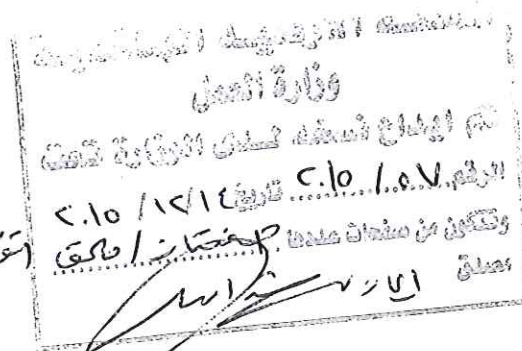 المملكة الأردنية الهاشمية
وزارة العمل
تم ايداع نسخة لدى الوزارة تحت
الرقم ٢٠١٥/٥٧ تاريخ ٢٠١٥/١٢/١٤
وتتكون من صفحات عددها صفحتان / ملحق
مصدق